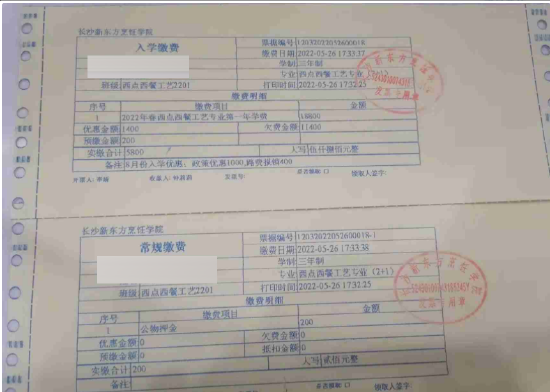 长沙新东方烹饪学院
入学缴费
票据编号 12032022052600018
缴费日期 2022-05-26 17:33:37
学制 三年制
专业 西点西餐工艺专业
班级 西点西餐工艺2201
打印时间 2022-05-26 17:32:25
缴费明细
序号 缴费项目 金额
1 2022年春西点西餐工艺专业第一年学费 18800
优惠金额 1400 欠费金额 11400
预缴金额 200
实缴合计 5800 大写 伍仟捌佰元整
备注 8月份入学优惠，政策优惠1000,路费报销400
领取人签字:
长沙新东方烹饪学院
常规缴费
票据编号 12032022052600018-1
缴费日期 2022-05-26 17:33:38
学制 三年制
专业 西点西餐工艺专业 (2+1)
班级 西点西餐工艺2201
打印时间 2022-05-26 17:32:25
缴费明细
序号 缴费项目 金额
1 公物押金 200
优惠金额 0 欠费金额 0
预缴金额 0 抵扣金额 0
实缴合计 200 大写 贰佰元整
备注
领取人签字: